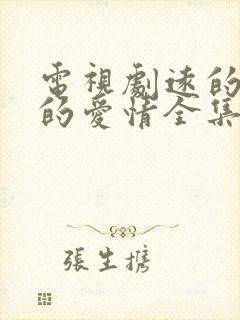 電視劇速的
的愛情全集
張生攜